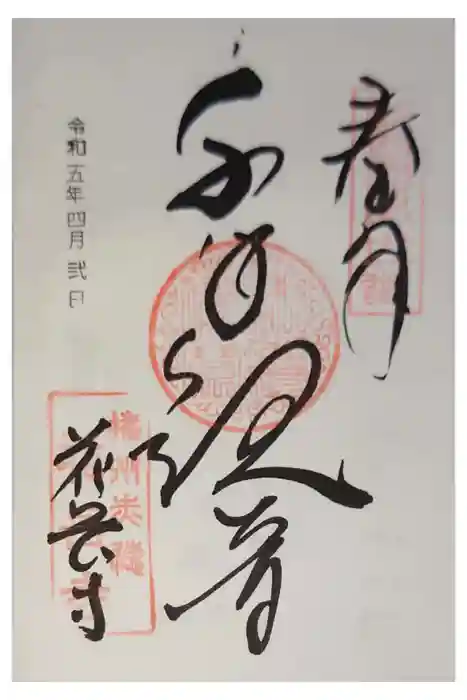 奉拝
千手観音
令和五年四月弐日
播州赤穂
花岳寺